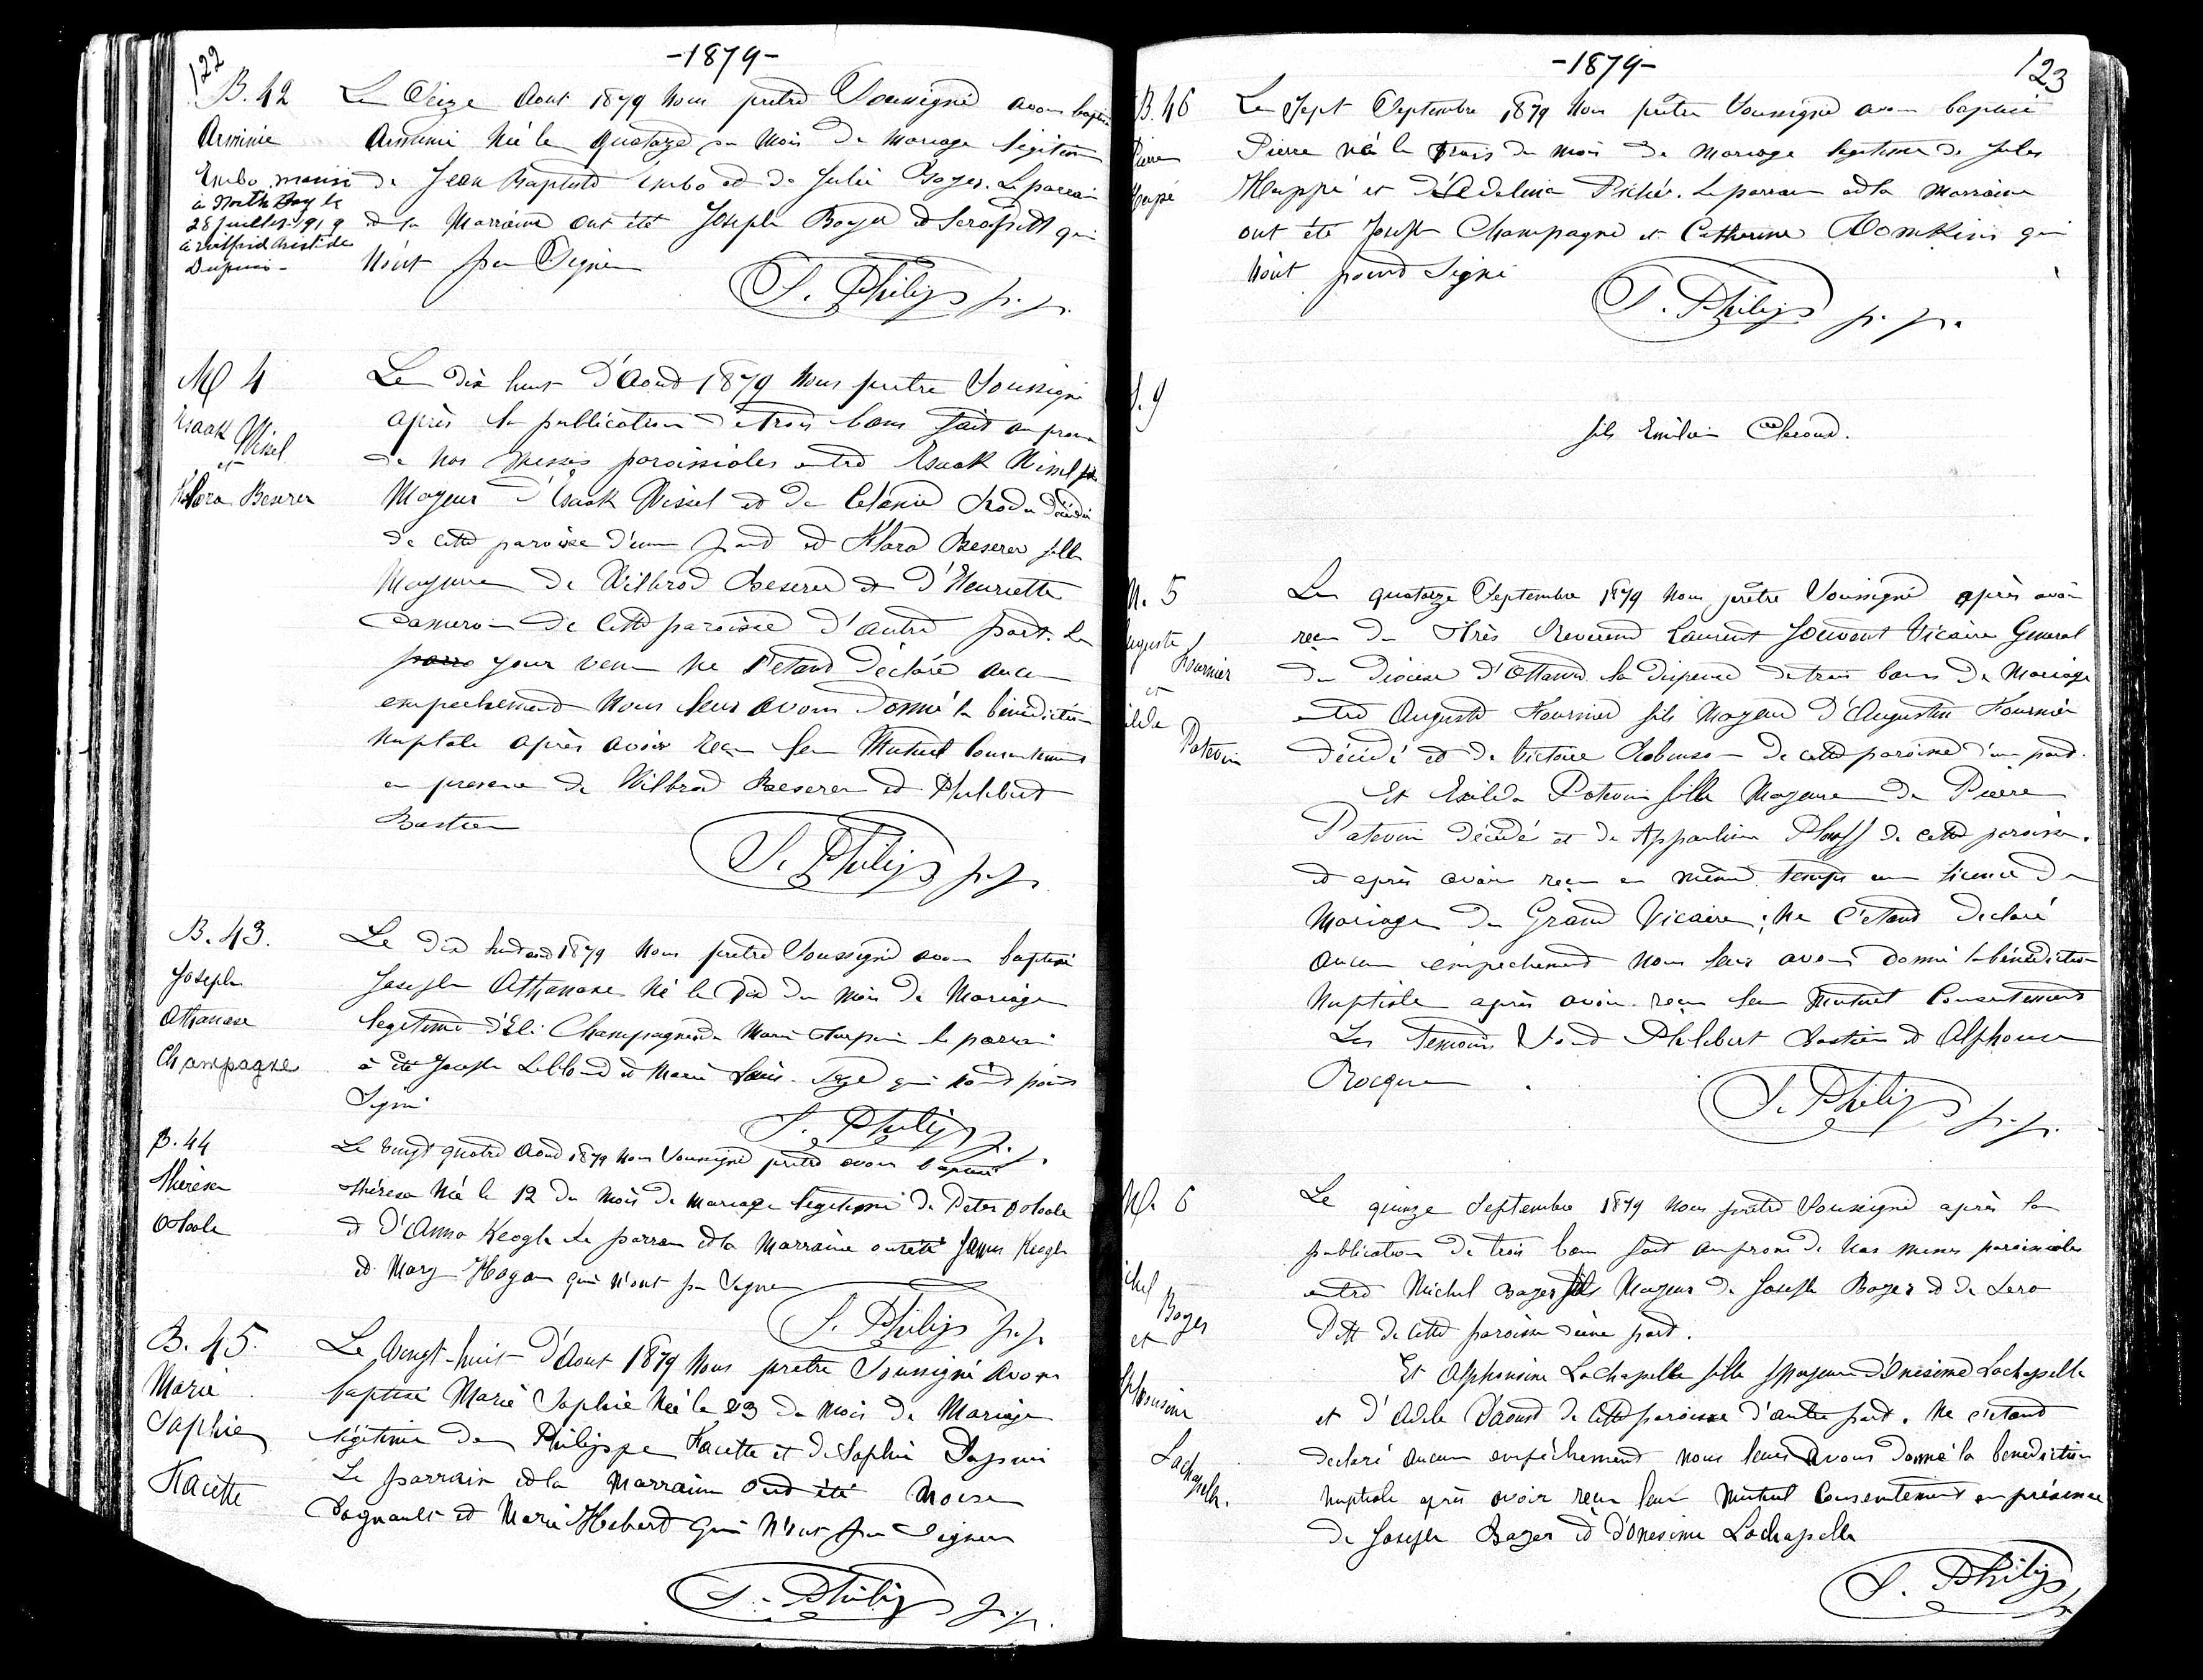 122
-1879-
B. 42
Arminie
Embo mariée
à North Bay le
28 juillet 1919
à Wilfrid Aristide
Dupuis -
Le Seize Aout 1879 Nous prêtre Soussigné avons baptisé
Arminie Né le quatorze du Mois de Mariage légitime
de Jean Baptiste Embo et de Julie Boyer. Le parrain
et la Marraine ont été Joseph Boyer et Sero Pitt qui
n'ont pu Signer
S. Philips p.p.
M 4
Esaak Nisel
et
Klora Beserer
Le dix huit d'Aout 1879 Nous prêtre Soussigné
après la publication de trois bans fait au prone
de nos messes paroissiales entre Esaak Nisel fils
Mayeur d'Esaak Nisiel et de Celanie décédée
de cette paroisse d'une part et Klara Beserer fille
Mayeure de Wilbrod Beserer et d'Henriette
Cameron de cette paroisse d'autre part. Le
jour venu ne s'etand déclaré aucun
empechement Nous leur avons Donné la bénédiction
Nuptiale après avoir reçu leur Mutuel Consentement
en presence de Wilbrod Beserer et Philibert
Bastien
S. Philips p.p.
B. 43.
Joseph
Athanase
Champagne
Le dix huit aout 1879 Nous prêtre Soussigné avons baptisé
Joseph Athanase Né le dix du Mois de Mariage
legitime d'Eli Champagne et de Marie Turpin le parrain
a été Joseph Leblond et Marie Louis Sage qui n'ont point
Signé
S. Philips p.p.
B. 44
Thérèse
Otoole
Le vingt quatre Aout 1879 Nous Soussigné prêtre avons baptisé
Thérèse Né le 12 du Mois de Mariage legitime de Peter Otoole
et d'Anna Keogh Le parrain et la Marraine ont été James Keogh
et Mary Hogan qui n'ont pu Signer
S. Philips p.p.
B. 45.
Marie
Sophie
Facette
Le Vingt-huit d'Aout 1879 Nous prêtre Soussigné Avons
baptisé Marie Sophie Née le 23 du Mois de Mariage
légitime de Philippe Facette et de Sophie Dupuis
Le parrain et la Marraine ont été Moise
Dagnault et Marie Hebert Qui N'ont pu Signer
S. Philips p.p.
-1879-
123
B. 46
Pierre
Huppé
Le Sept Septembre 1879 Nous prêtre Soussigné avons baptisé
Pierre né le trois du mois de Mariage legitime de Jules
Huppé et d'Adelina Piché. Le parrain et la Marraine
ont été Joseph Champagne et Catherine Tomkins qui
n'ont point Signé
S. Philips p.p.
S. 9
fils Emilien Cheroud.
M. 5
Auguste
Fournier
et
ilda
Potevin
Le quatorze Septembre 1879 Nous prêtre Soussigné après avoir
reçu du très Reverend Laurent Jouvent Vicaire General
du Diocèse d'Ottawa la dispense de trois bans de Mariage
entre Auguste Fournier fils Mayeur d'Augustin Fournier
décédé et de Victoire Robinson de cette paroisse d'une part.
Et Exilda Potevin fille Mayeure de Pierre
Potevin décédé et de Appauline Plouff de cette paroisse.
et après avoir reçu en même temps une licence de
Mariage du Grand Vicaire; Ne s'etand declaré
aucun empechement Nous leur avons donné la bénédiction
Nuptiale après avoir reçu leur Mutuel Consentement
Les Temoins Sond Philibert Bastien et Alphonse
Rocque
S. Philips p.p.
M. 6
ichel
Boyer
et
Alphonsine
Lachapelle.
Le quinze Septembre 1879 Nous prêtre Soussigné après la
publication de trois bans fait au prone de Nos messes paroissiales
entre Michel Boyer fils Mayeur de Joseph Boyer et de Sero
Pitt de cette paroisse d'une part.
Et Alphonsine Lachapelle fille Mayeure d'Onésime Lachapelle
et d'Adele Daoust de cette paroisse d'autre part. Ne s'etand
declaré aucun empêchement nous leur Avons Donné la benediction
Nuptiale après avoir reçu leur Mutuel Consentement en présence
de Joseph Boyer et d'Onesime Lachapelle
S. Philips